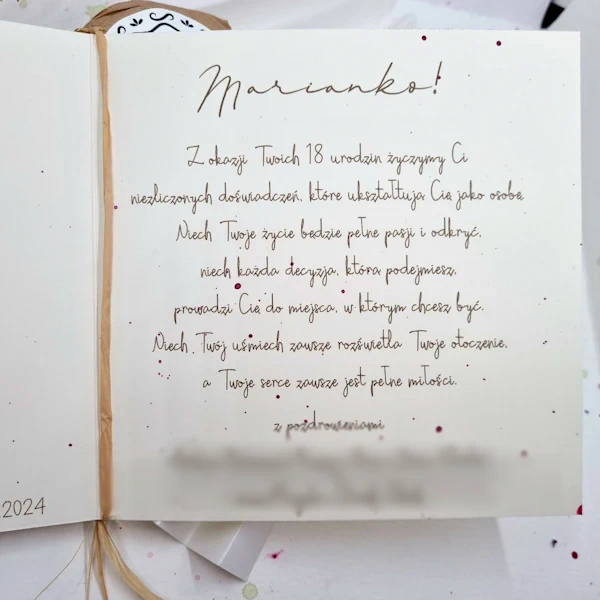 Marianko!
Z okazji Twoich 18 urodzin życzymy Ci
niezliczonych doświadczeń, które ukształtują Cię jako osobę.
Niech Twoje życie będzie pełne pasji i odkryć,
niech każda decyzja, którą podejmiesz,
prowadzi Cię do miejsca, w którym chcesz być.
Niech Twój uśmiech zawsze rozświetla Twoje otoczenie,
a Twoje serce zawsze jest pełne miłości.
z pozdrowieniami
2024